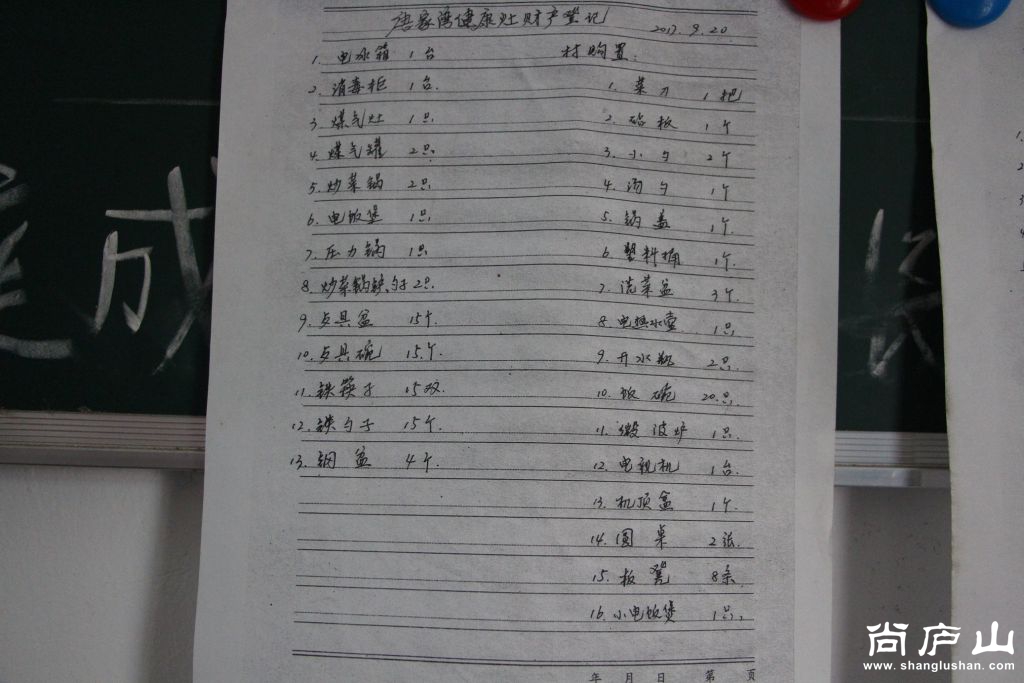 唐家湾健康灶财产登记
2017.9.20
1. 电冰箱 1台
2. 消毒柜 1台.
3. 煤气灶 1只
4. 煤气罐 2只
5. 炒菜锅 2只
6. 电饭煲 1只
7. 压力锅 1只
8. 炒菜锅铲、勺子 2只
9. 点具盆 15个
10. 点具碗 15个
11. 铁筷子 15双
12. 铁勺子 15个
13. 钢盆 4个
村购置:
1. 菜刀 1把
2. 砧板 1个
3. 小勺 2个
4. 汤勺 1个
5. 锅盖 1个
6. 塑料桶 1个
7. 洗菜盆 3个
8. 电热水壶 1只
9. 开水瓶 2只
10. 饭碗 20只
11. 微波炉 1只
12. 电视机 1台
13. 机顶盒 1个
14. 圆桌 2张
15. 板凳 8条
16. 小电饭煲 1只
年 月 日 第 页
成
长
1.
2
3
4
尚庐山
www.shanglushan.com